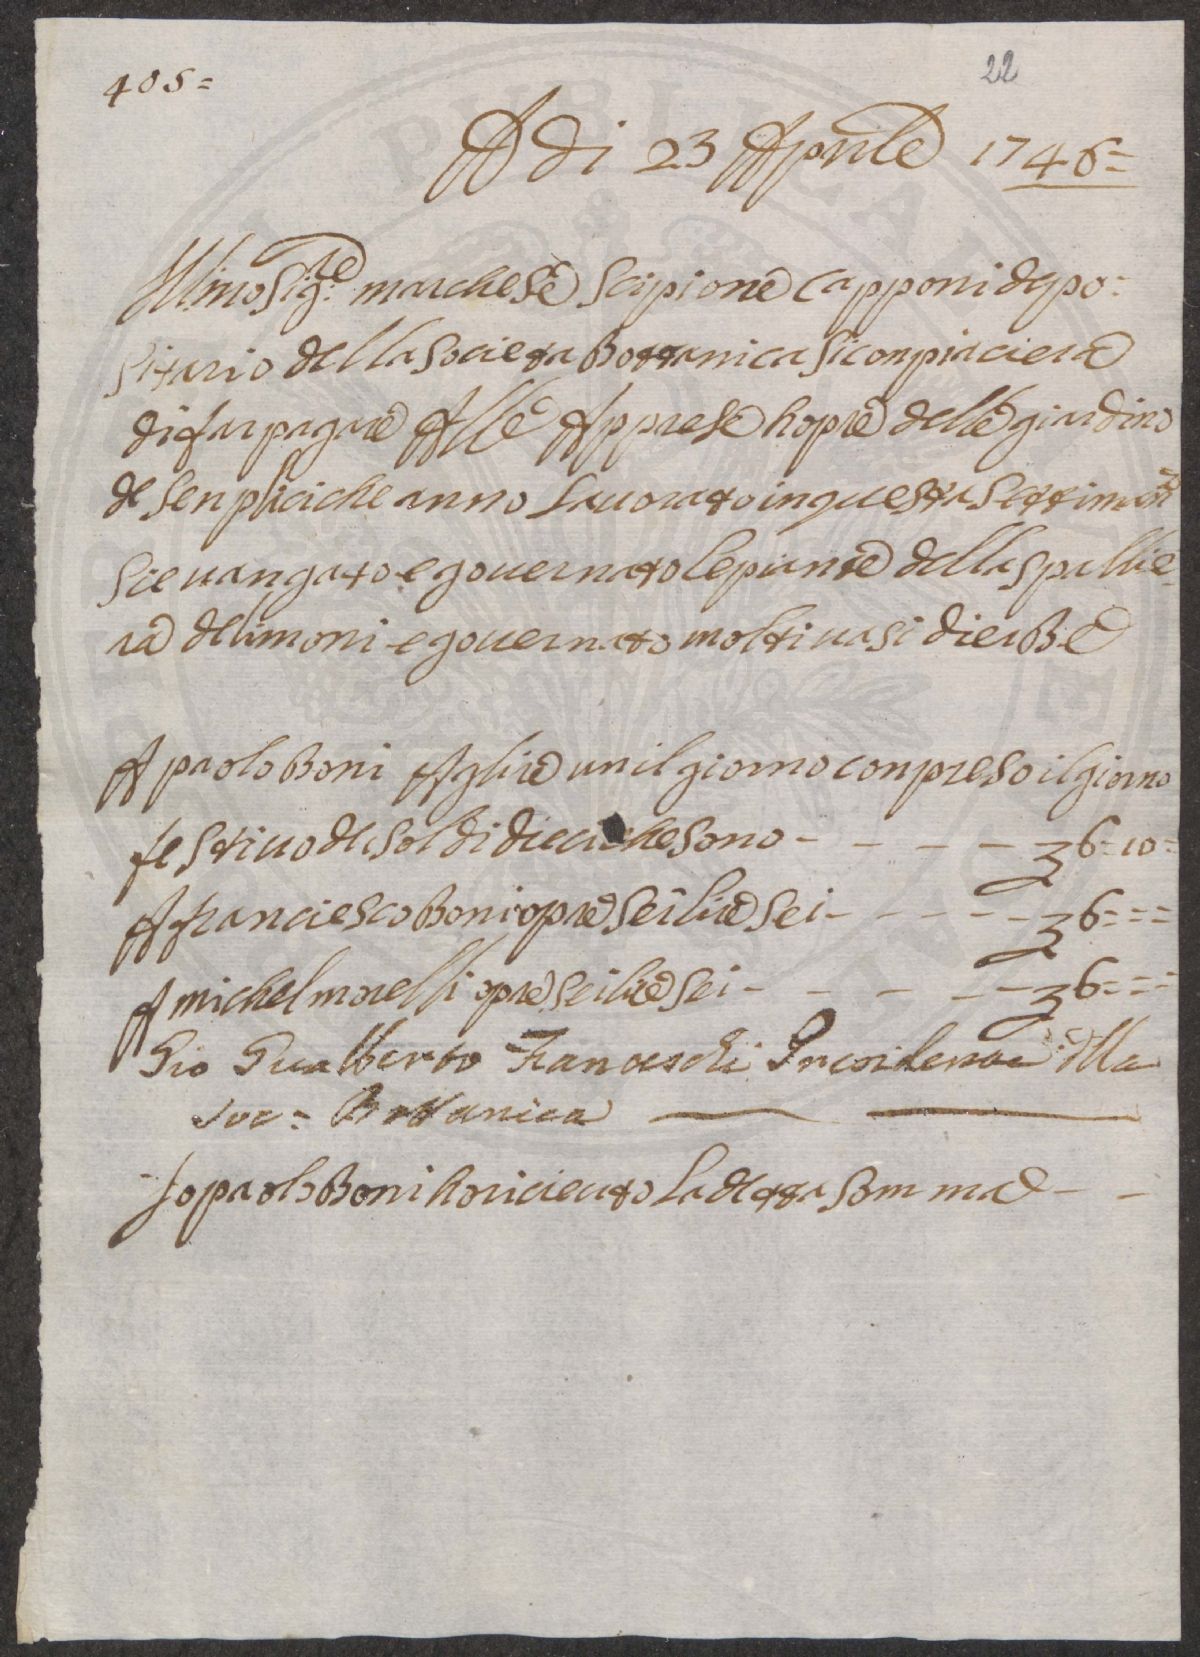 405=
22
A Di 23 Aprile 1746=
Illmo Sig.re marchese Scipione Capponi depo=
Sitario della Società Bottanica Siconpiacierà
di far pagare Alle Apprese hopre delle giardino
de Senplici che anno Lavorato in questa Settimana
Sie vangato e governato le piante della Spallie
ra de limoni e governato molti vasi di erBe
A paolo Boni A glire un il giorno conpreso il giorno
festivo de Soldi dieci che sono - - - - - 6=10=
A Franciesco Boni opre Sei lire Sei - - - - - 6===
A michel morelli opre Sei lire Sei - - - - - 6===
Gio Gualberto Franceschi Presidente Alla
Soc= Bottanica
Io paolo Boni ho ricieuto La detta Somma - -